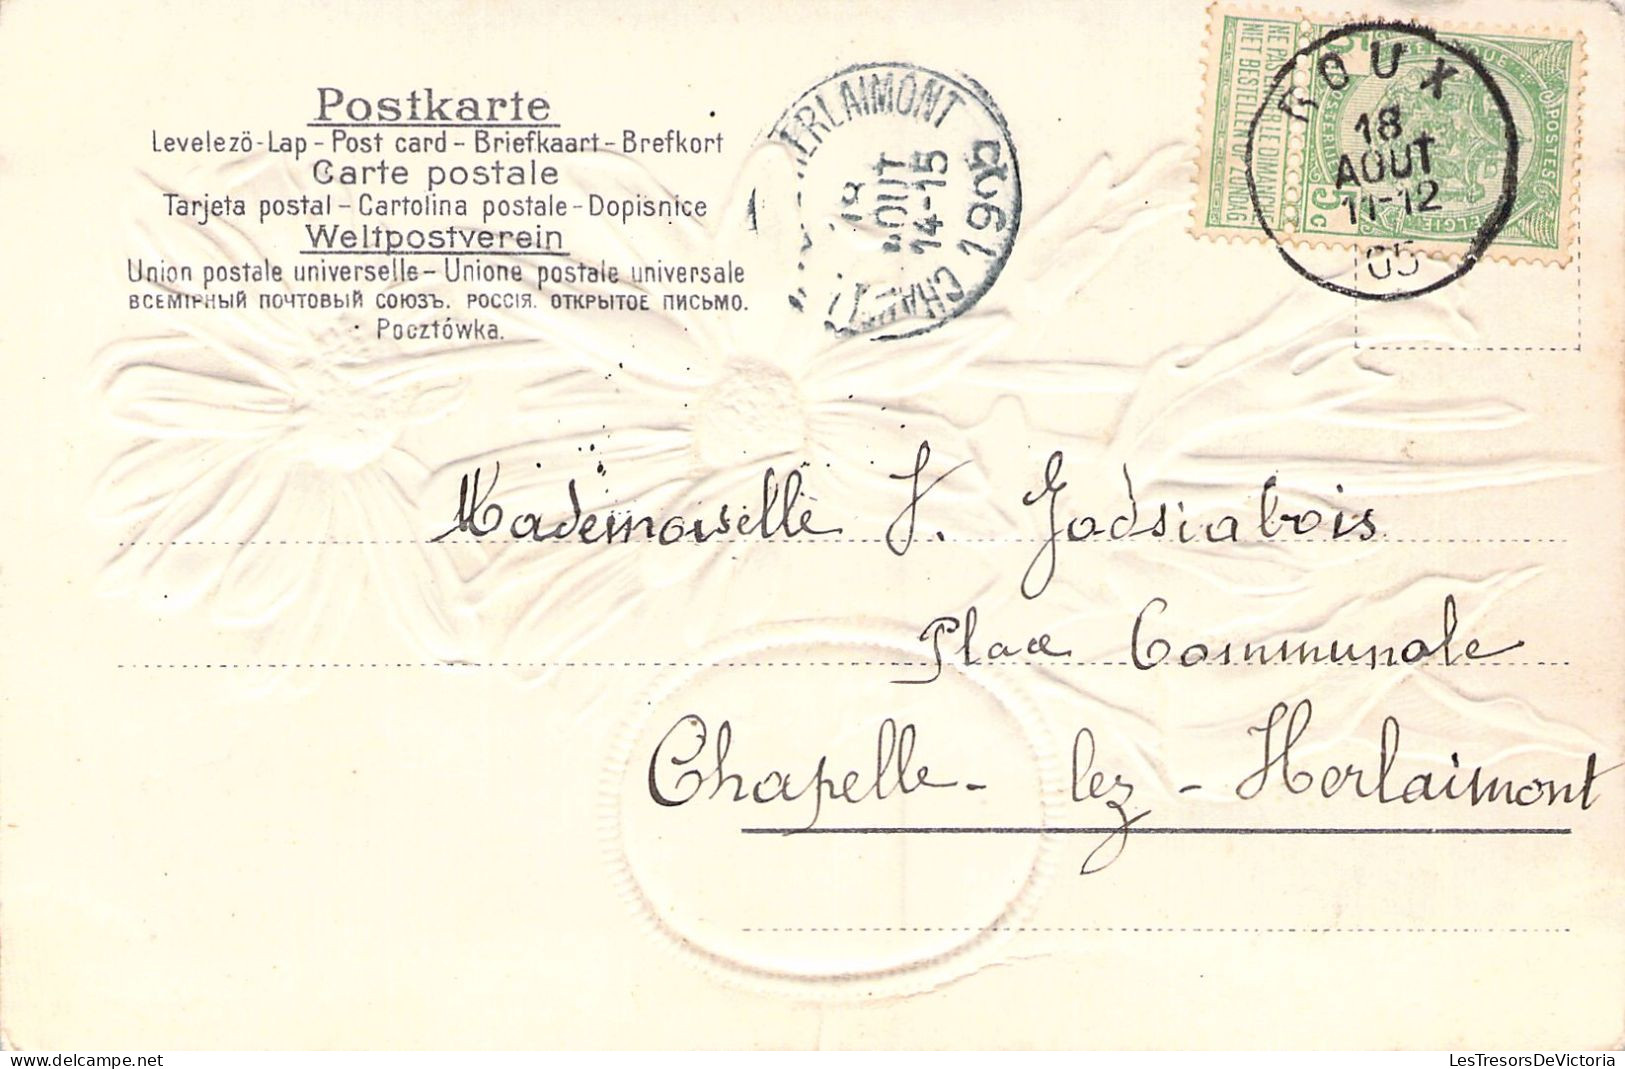 Postkarte
Levelezö-Lap - Post card - Briefkaart - Brefkort
Carte postale
Tarjeta postal - Cartolina postale - Dopisnice
Weltpostverein
Union postale universelle - Unione postale universale
ВСЕМІРНЫЙ ПОЧТОВЫЙ СОЮЗЪ. РОССІЯ. ОТКРЫТОЕ ПИСЬМО.
Pocztówka.
HERLAIMONT
18
AOUT
14-15
1905
NE PAS LIVRER LE DIMANCHE
NIET BESTELLEN OP ZONDAG
5 5 c
POSTES
BELGIE
ROUX
18
AOUT
11-12
05
Mademoiselle J. Godsiabois
Place Communale
Chapelle-lez-Herlaimont
LesTresorsDeVictoria
delcampe.net